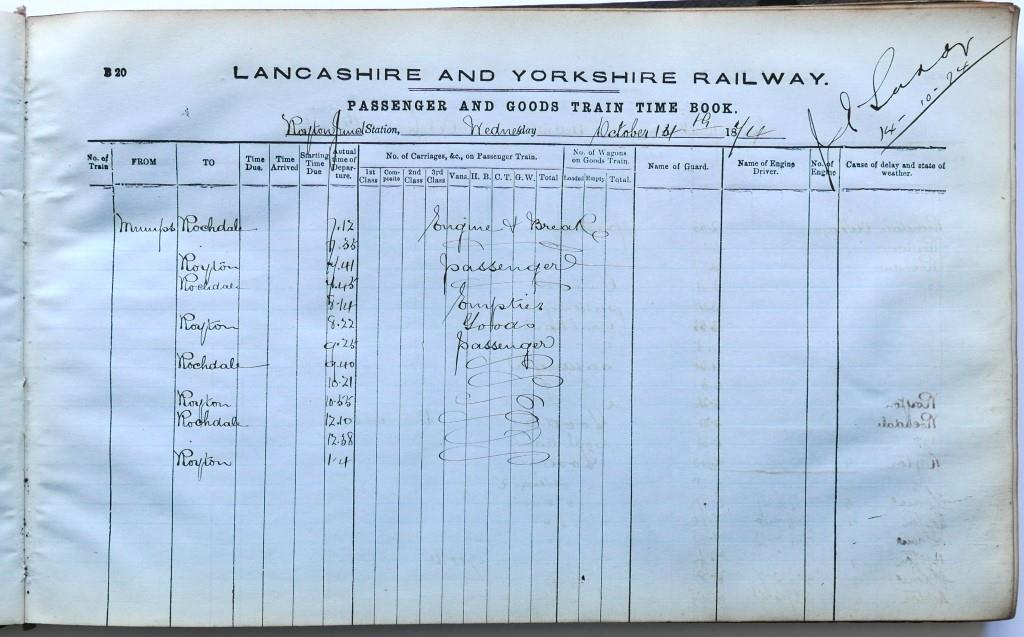 B 20
LANCASHIRE AND YORKSHIRE RAILWAY.
PASSENGER AND GOODS TRAIN TIME BOOK.
14-10-24
Royton Junc Station, Wednesday October 14 19 18
No. of Train
FROM
TO
Time Due.
Time Arrived
Starting Time Due
Actual time of Departure.
No. of Carriages, &c., on Passenger Train.
1st Class
Composite
2nd Class
3rd Class
Vans.
H. B.
C. T.
G. W.
Total
No. of Wagons on Goods Train.
Loaded
Empty
Total.
Name of Guard.
Name of Engine Driver.
No. of Engine
Cause of delay and state of weather.
Mumps Rochdale 7.12 Engine & Break
" 7.35
Royton 7.41 Passenger
Rochdale 7.45 "
8.14 Empties
Royton 8.22 Goods
9.25 Passenger
Rochdale 9.40
10.21
Royton 10.55
Rochdale 12.10
" 12.38
Royton 1.4